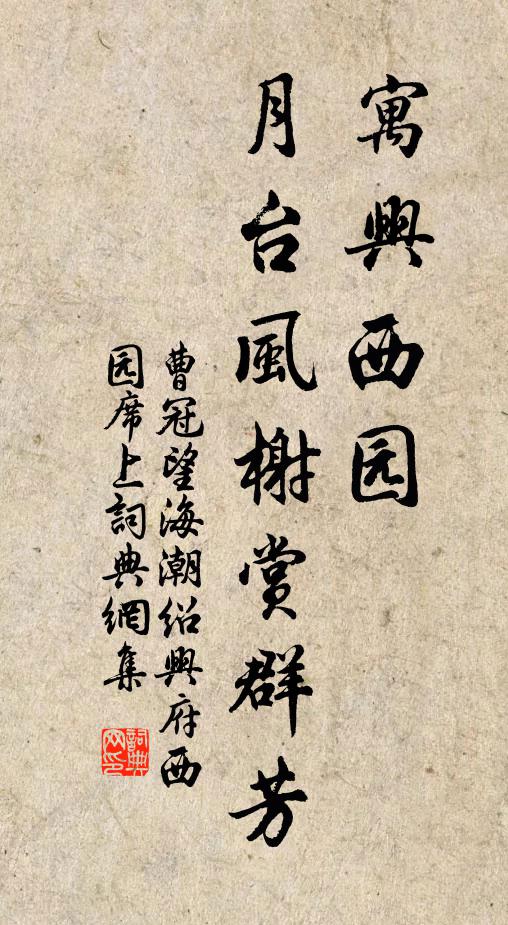 寓興西园
月台風榭賞群芳
曹冠望海潮绍興府西
园席上詞典網集
詞典网印